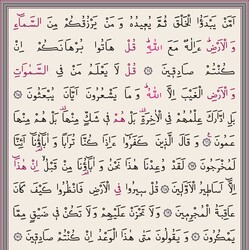 أَمَّن يَبْدَؤُا۟ الْخَلْقَ ثُمَّ يُعِيدُهُ وَمَن يَرْزُقُكُم مِّنَ السَّمَاءِ
وَالْأَرْضِ أَءِلَٰهٌ مَّعَ اللَّهِ قُلْ هَاتُوا بُرْهَانَكُمْ إِن
كُنتُمْ صَادِقِينَ ۝ قُل لَّا يَعْلَمُ مَن فِي السَّمَٰوَاتِ
وَالْأَرْضِ الْغَيْبَ إِلَّا اللَّهُ وَمَا يَشْعُرُونَ أَيَّانَ يُبْعَثُونَ ۝
بَلِ ادَّارَكَ عِلْمُهُمْ فِي الْآخِرَةِ بَلْ هُمْ فِي شَكٍّ مِّنْهَا بَلْ هُم مِّنْهَا
عَمُونَ ۝ وَقَالَ الَّذِينَ كَفَرُوا أَءِذَا كُنَّا تُرَابًا وَءَابَاؤُنَا أَئِنَّا
لَمُخْرَجُونَ ۝ لَقَدْ وُعِدْنَا هَٰذَا نَحْنُ وَءَابَاؤُنَا مِن قَبْلُ إِنْ هَٰذَا
إِلَّا أَسَاطِيرُ الْأَوَّلِينَ ۝ قُلْ سِيرُوا فِي الْأَرْضِ فَانظُرُوا كَيْفَ كَانَ
عَاقِبَةُ الْمُجْرِمِينَ ۝ وَلَا تَحْزَنْ عَلَيْهِمْ وَلَا تَكُن فِي ضَيْقٍ مِّمَّا
يَمْكُرُونَ ۝ وَيَقُولُونَ مَتَىٰ هَٰذَا الْوَعْدُ إِن كُنتُمْ صَادِقِينَ ۝